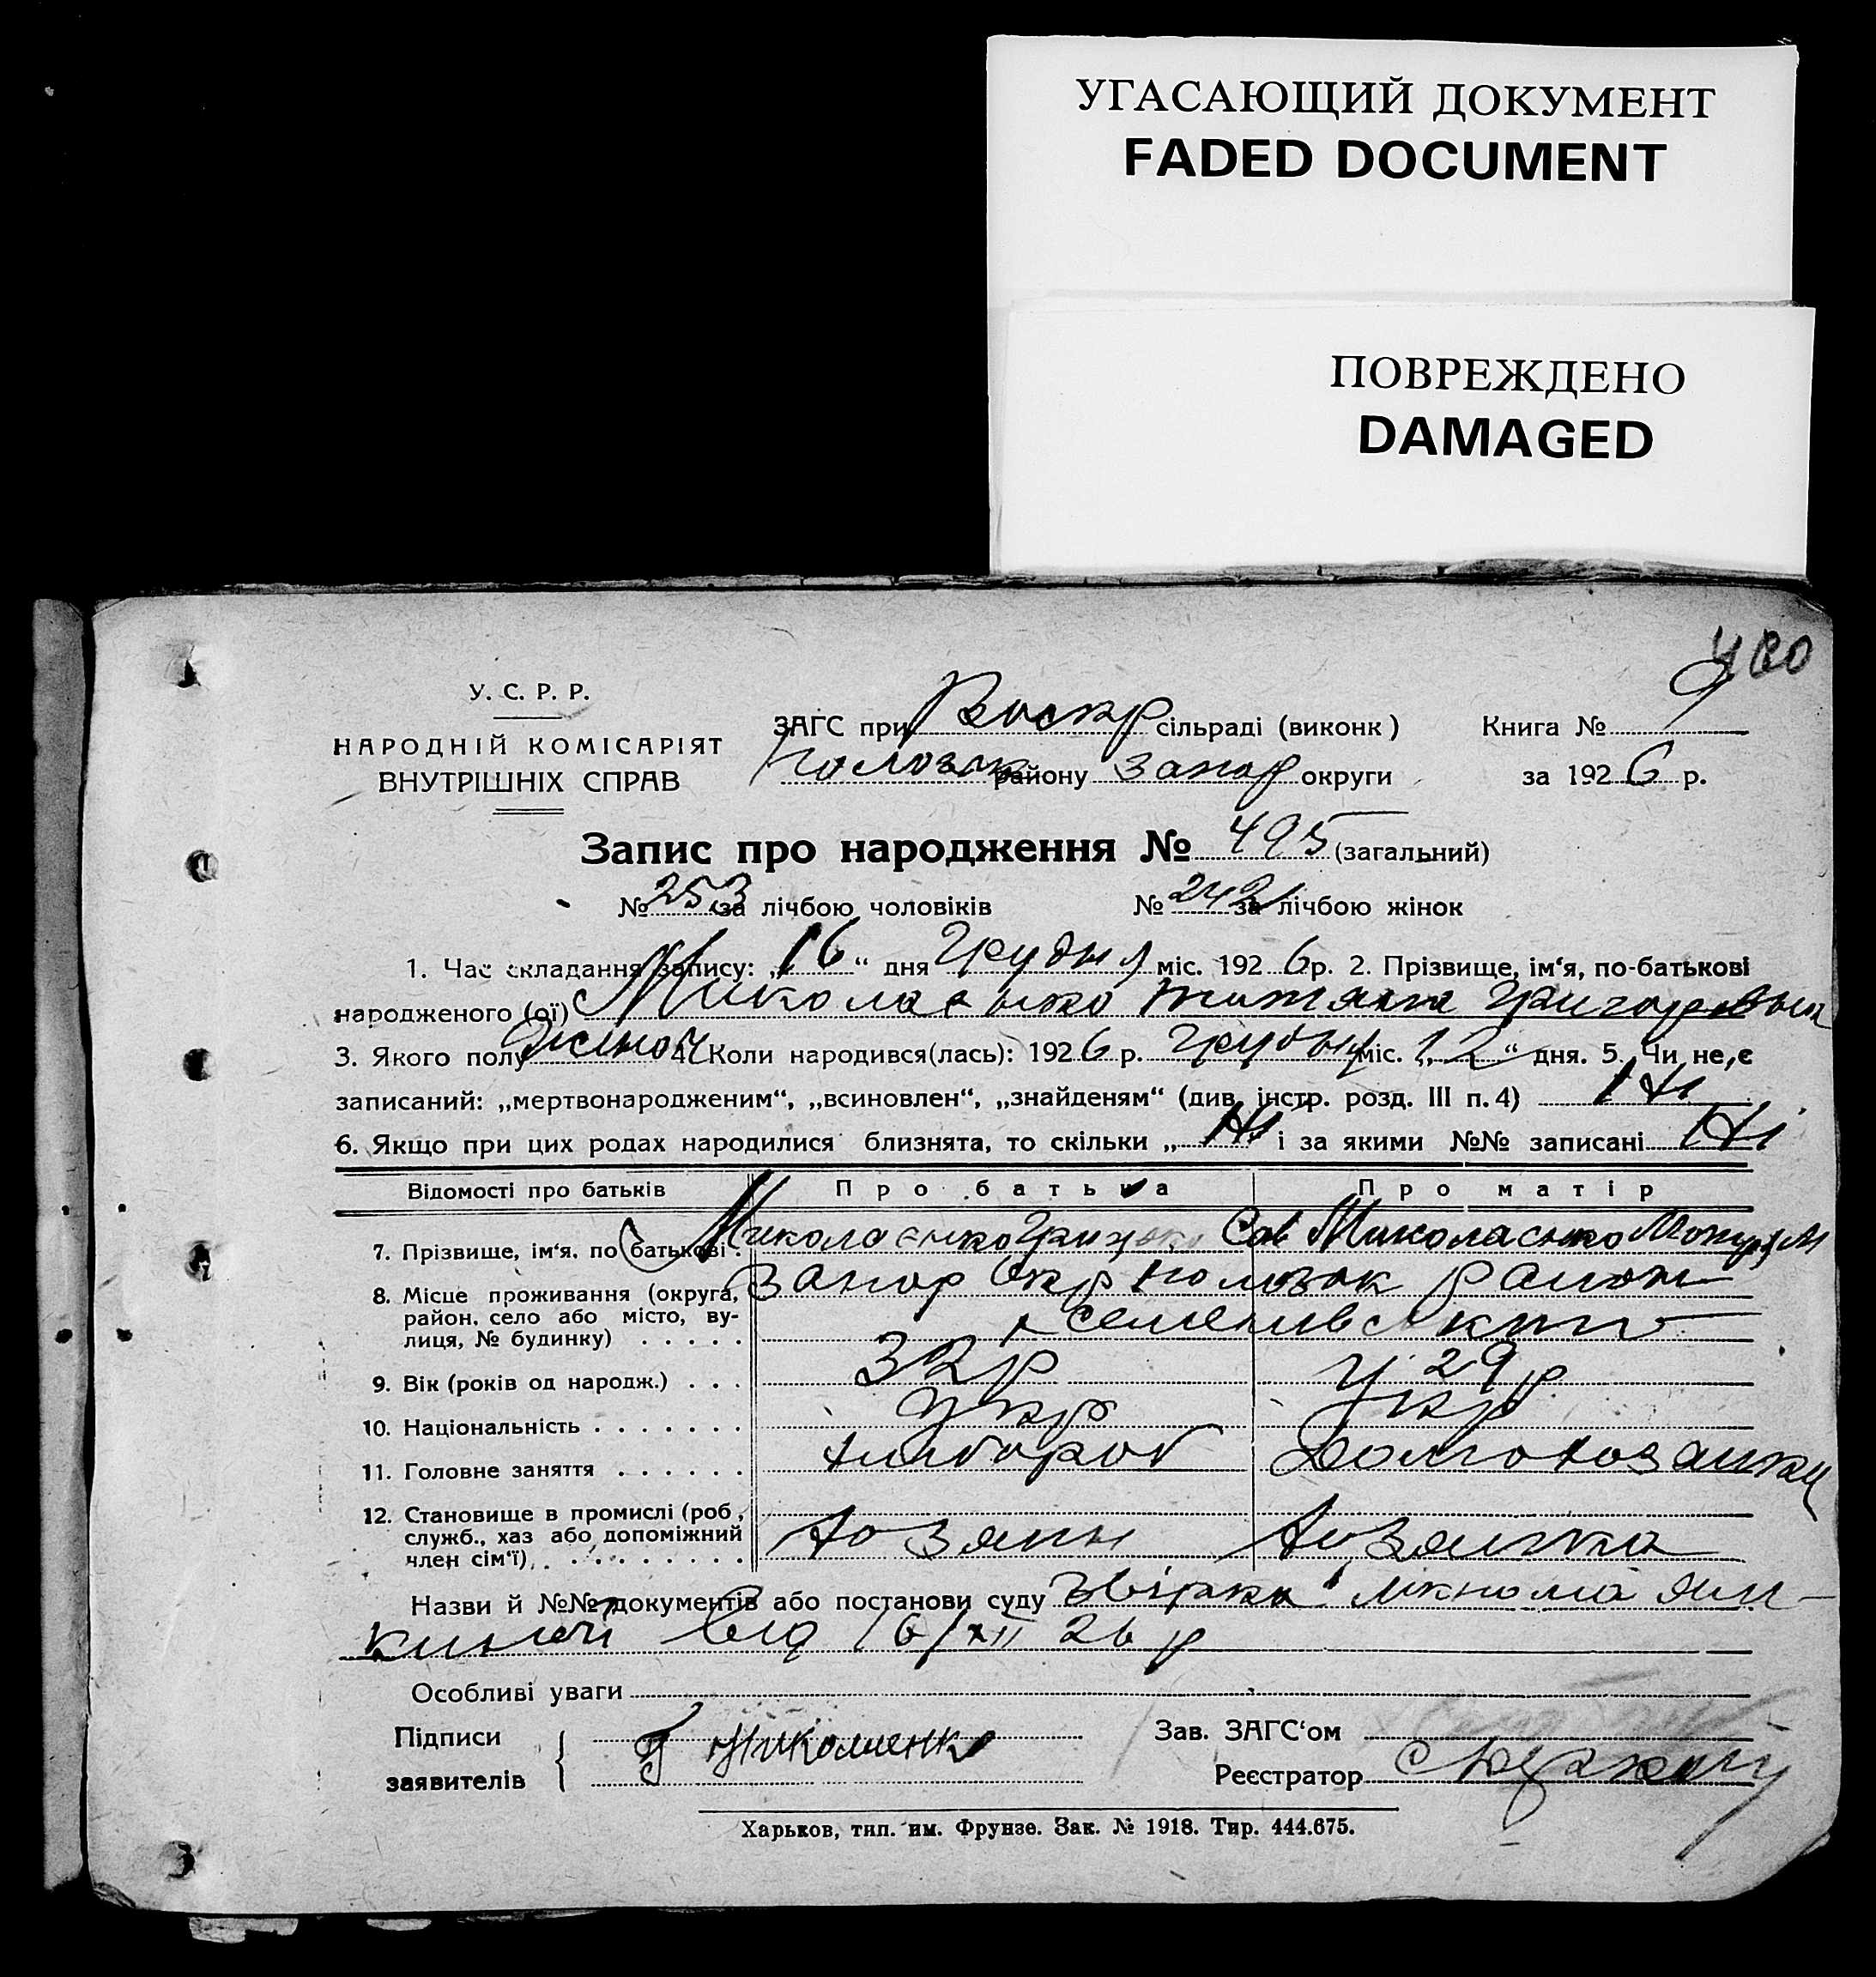 УГАСАЮЩИЙ ДОКУМЕНТ
FADED DOCUMENT
ПОВРЕЖДЕНО
DAMAGED
У. С. Р. Р.
НАРОДНІЙ КОМІСАРІЯТ
ВНУТРІШНІХ СПРАВ
ЗАГС при Воскр сільраді (виконк) Книга № 9
району Запор округи за 1926 р.
Запис про народження № 495 (загальний)
№ 253 за лічбою чоловіків № 242 за лічбою жінок
1. Час складання запису: „16“ дня Грудня міс. 1926 р. 2. Прізвище, ім‘я, по-батькові
народженого (ої) Миколаєнко Григоровна
3. Якого полу жіноч 4. Коли народився(лась): 1926 р. Грудня міс. „12“ дня. 5. Чи не є
записаний: „мертвонародженим“, „всиновлен“, „знайденям“ (див. інстр. розд. III п. 4) Ні
6. Якщо при цих родах народилися близнята, то скільки „Ні“ і за якими №№ записані Ні
Відомості про батьків Про батька Про матір
7. Прізвище, ім‘я, по батькові. Миколаєнко Грицько Сав Миколаєнко
8. Місце проживання (округа, Запор Окр район
район, село або місто, ву-
лиця, № будинку) . . . . .
9. Вік (років од народж.) . . . 32 р 29 р
10. Національність . . . . . . . Укр Укр
11. Головне заняття . . . . . . хлібороб
12. Становище в промислі (роб.,
служб., хаз або допоміжний хозяин хозяйка
член сім‘ї) . . . . . . . . .
Назви й №№ документів або постанови суду
від 16/XII 26 р
Особливі уваги
Підписи Зав. ЗАГС‘ом
заявителів Г Миколаенко Реєстратор
Харьков, тип. им. Фрунзе. Зак. № 1918. Тир. 444.675.